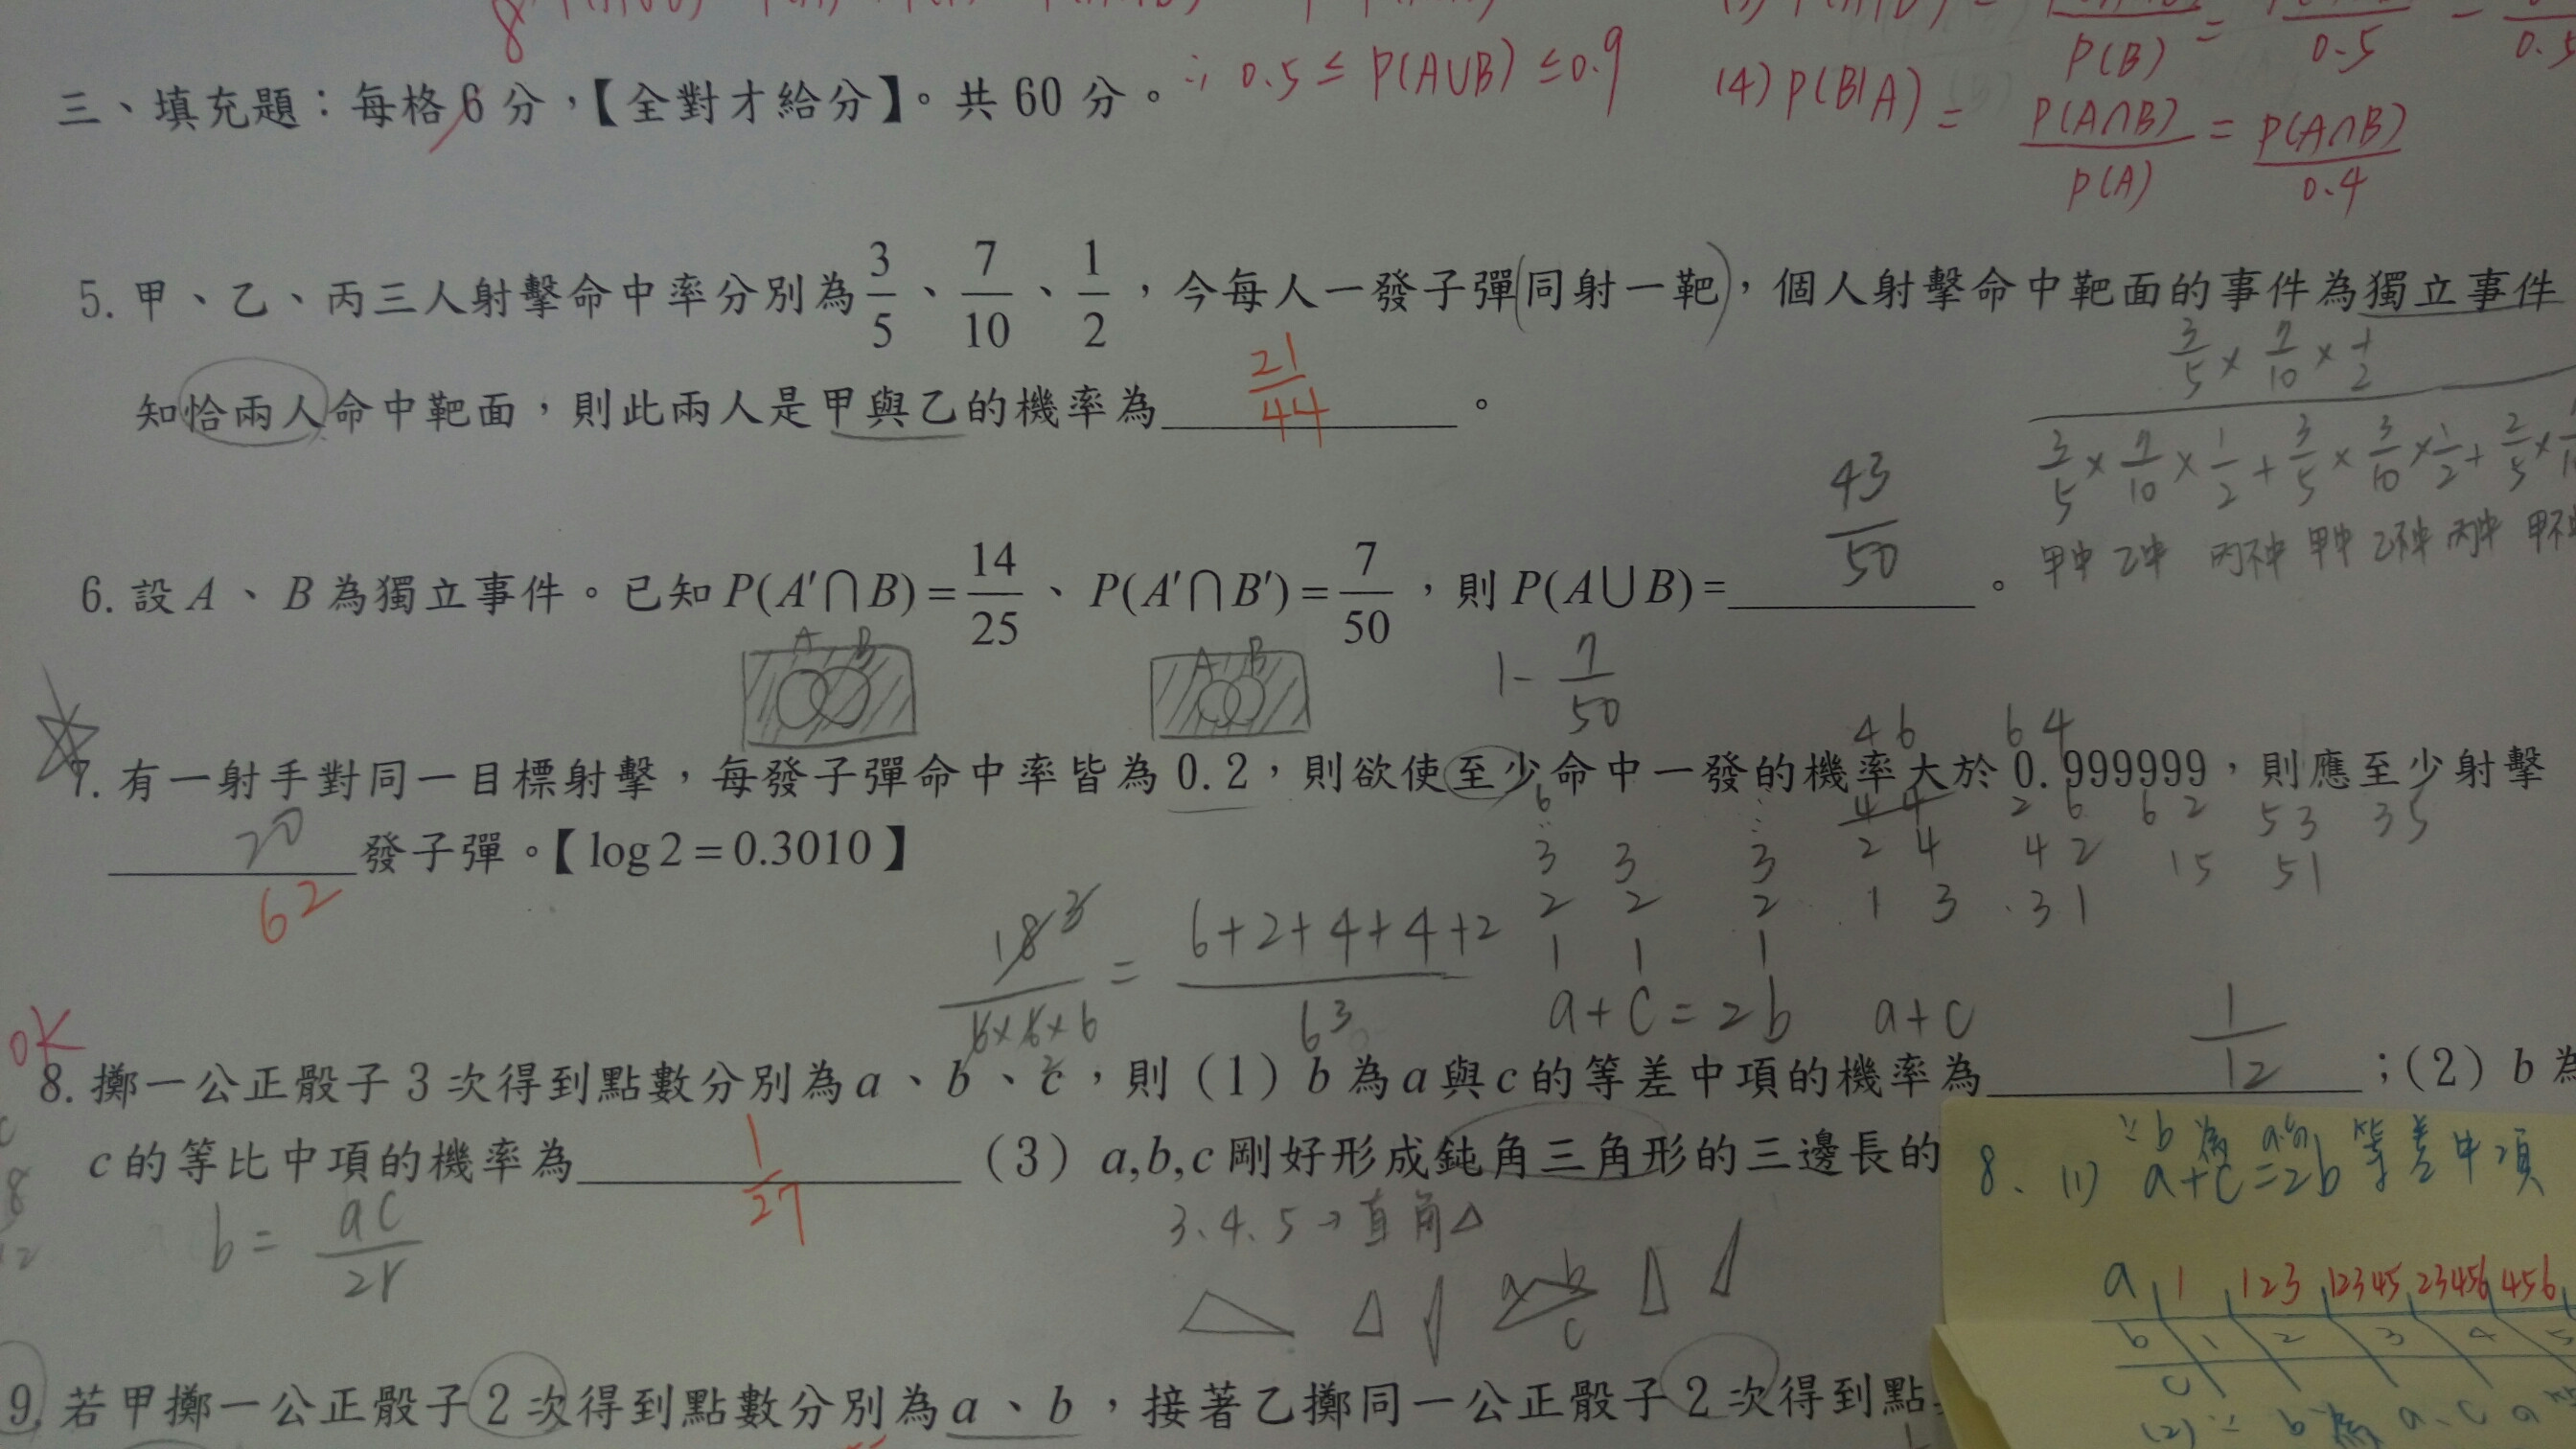 三、填充題：每格 6 分，【全對才給分】。共 60 分。
∴ 0.5 ≤ P(A∪B) ≤ 0.9
P(B) = 0.5
(4) P(B|A) = P(A∩B)/P(A) = P(A∩B)/0.4
5. 甲、乙、丙三人射擊命中率分別為 3/5、7/10、1/2，今每人一發子彈(同射一靶)，個人射擊命中靶面的事件為獨立事件
知恰兩人命中靶面，則此兩人是甲與乙的機率為 21/44 。
3/5 × 7/10 × 1/2
3/5 × 7/10 × 1/2 + 3/5 × 3/10 × 1/2 + 2/5 ×
甲中 乙中 丙不中 甲中 乙不中 丙中 甲不
6. 設 A、B 為獨立事件。已知 P(A′∩B) = 14/25、P(A′∩B′) = 7/50，則 P(A∪B) = 43/50 。
A B
A B
1 - 7/50
46 64
7. 有一射手對同一目標射擊，每發子彈命中率皆為 0.2，則欲使至少命中一發的機率大於 0.999999，則應至少射擊
20 發子彈。【log 2 = 0.3010】
62
6 44 26 62 53 35
3 3 3 24 42 15 51
2 2 2 13 31
1 1 1
18 3/6×6×6 = 6+2+4+4+2/6³
2
a+c=2b a+c
OK
8. 擲一公正骰子 3 次得到點數分別為 a、b、c，則（1）b 為 a 與 c 的等差中項的機率為 1/12 ；（2）b 為
c 的等比中項的機率為 1/27 （3）a,b,c 剛好形成鈍角三角形的三邊長的
b = ac/2r
3、4、5→直角△
a b
c
8、(1) ∵b為a的等差中項
a+c=2b
a 1 123 12345 23456 456
b 1 2 3 4 5
c
(2) ∵ b為a、c
9. 若甲擲一公正骰子 2 次得到點數分別為 a、b，接著乙擲同一公正骰子 2 次得到點